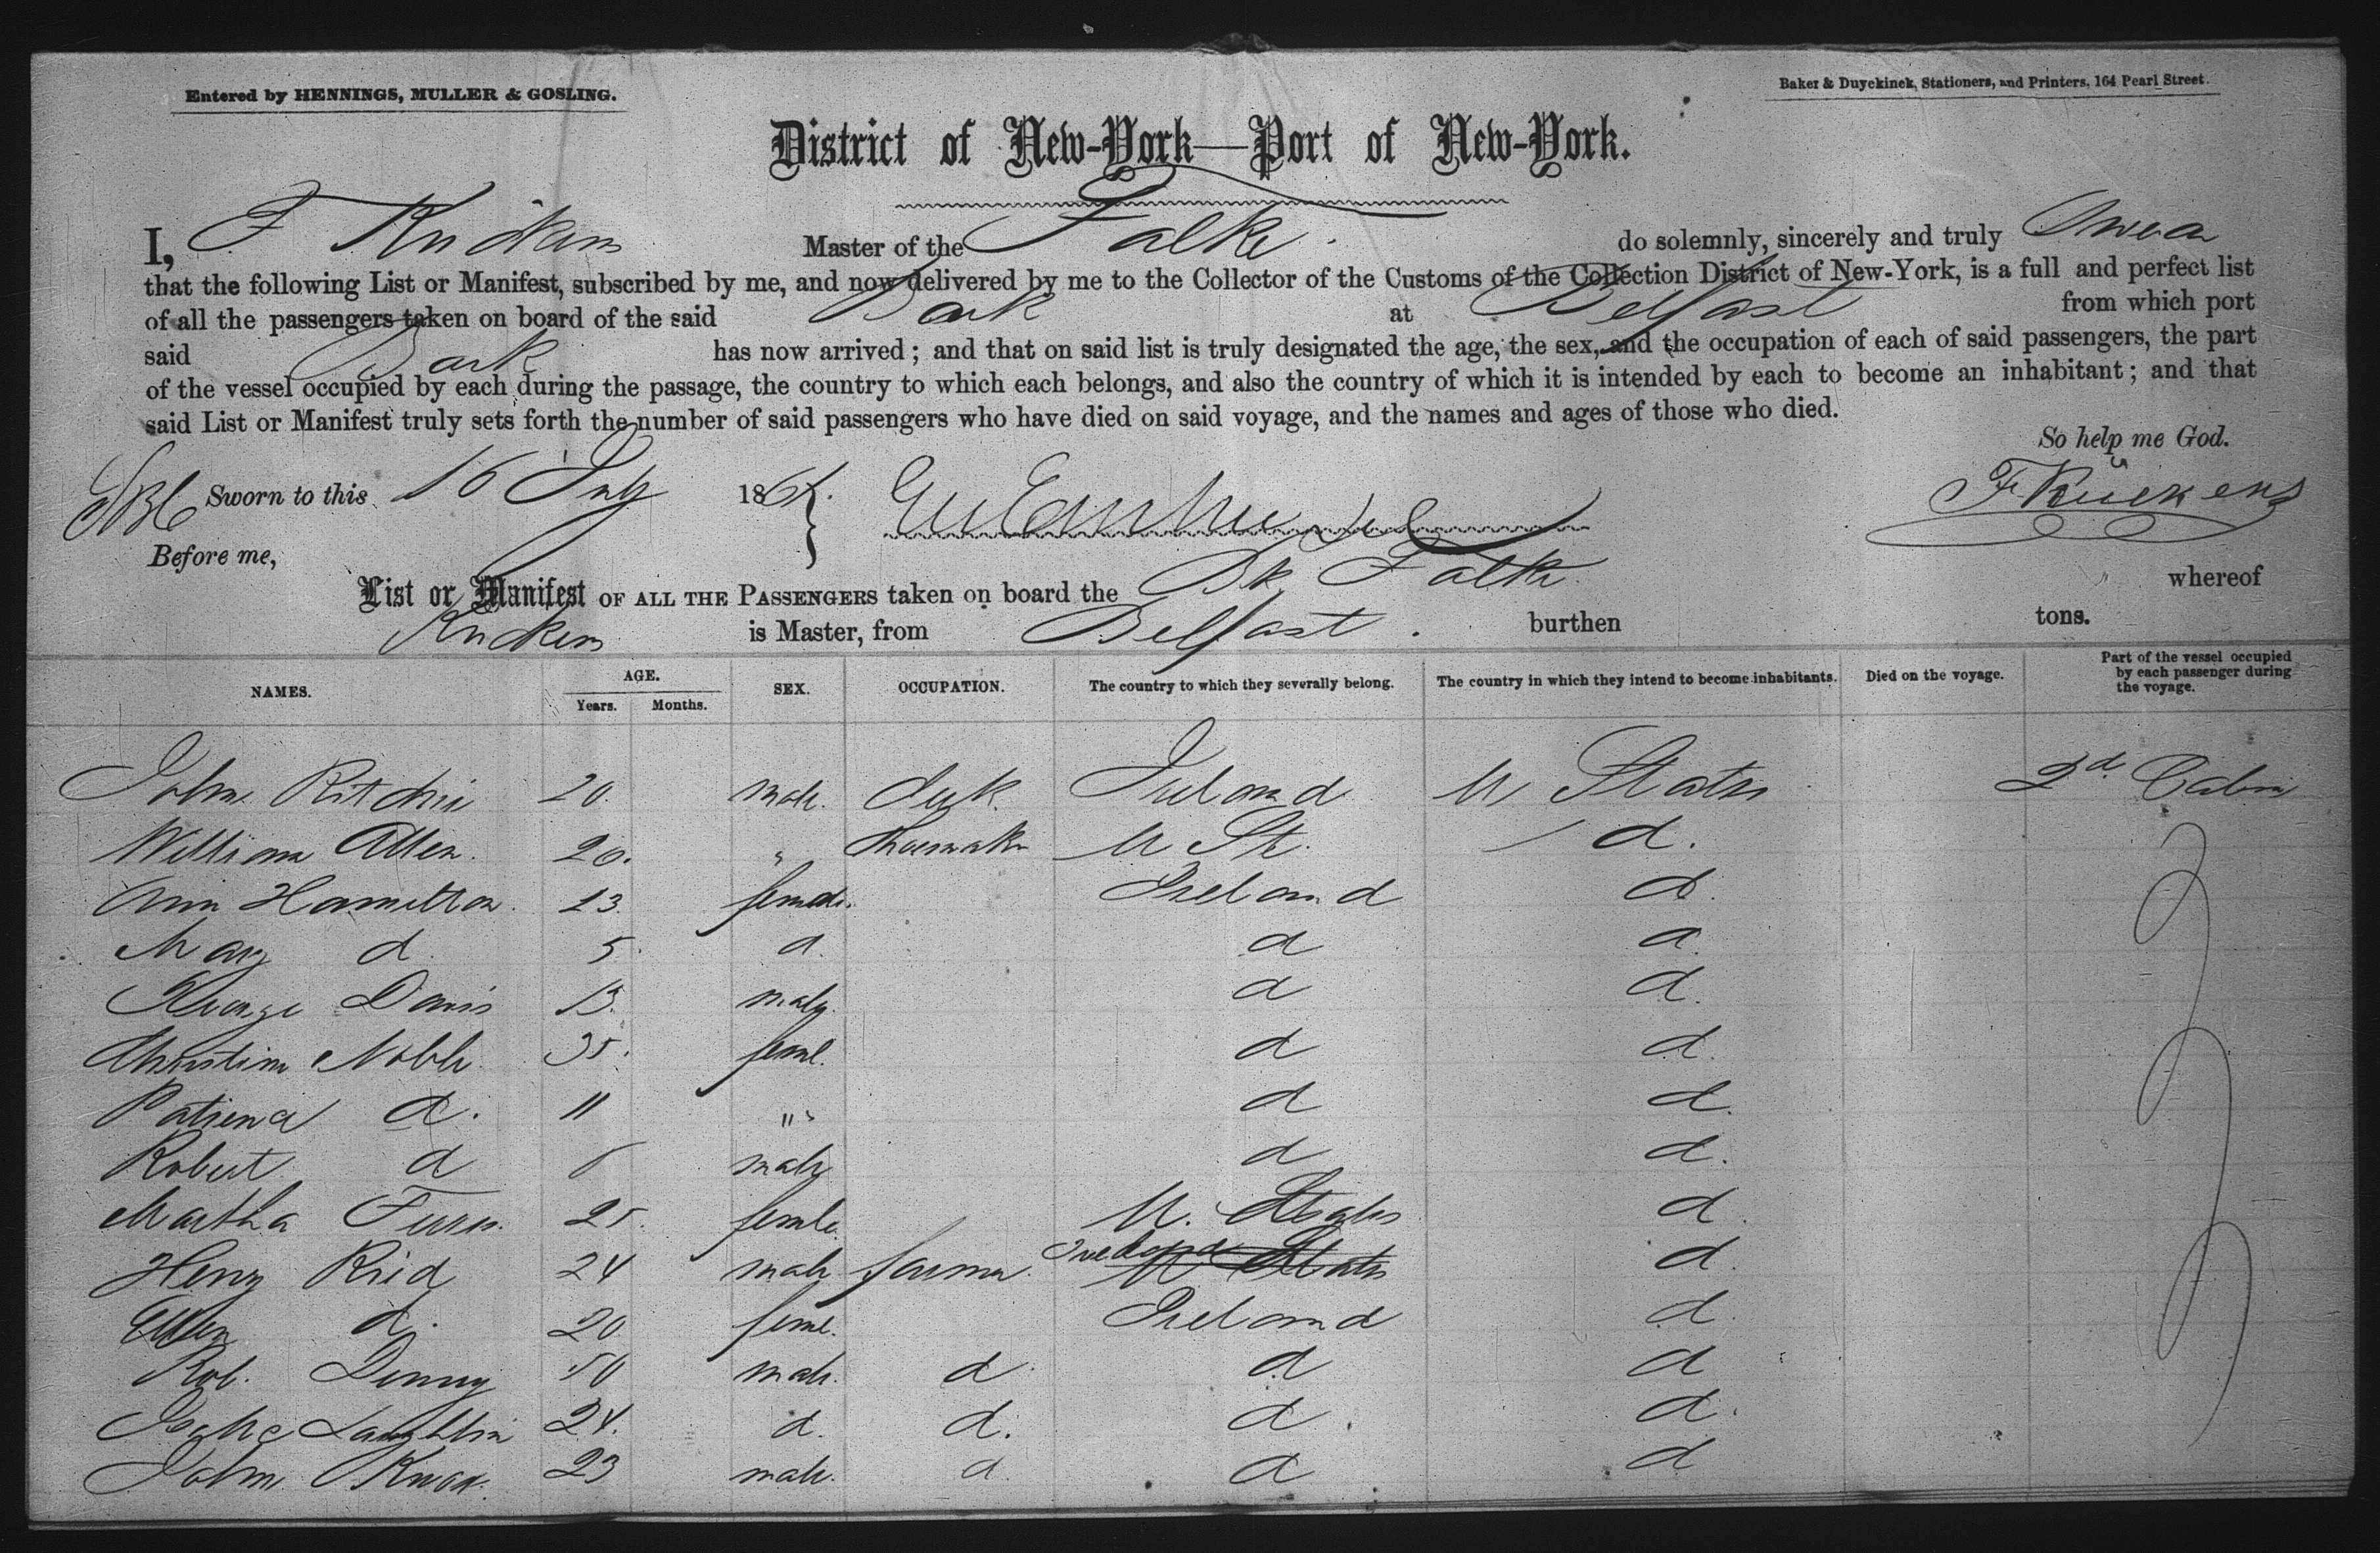 Entered by HENNINGS, MULLER & GOSLING.
Baker & Duyckinck, Stationers, and Printers, 164 Pearl Street.
District of New-York—Port of New-York.
I, F Ruckens Master of the Falke do solemnly, sincerely and truly Swear
that the following List or Manifest, subscribed by me, and now delivered by me to the Collector of the Customs of the Collection District of New-York, is a full and perfect list
of all the passengers taken on board of the said Bark at Belfast from which port
said Bark has now arrived; and that on said list is truly designated the age, the sex, and the occupation of each of said passengers, the part
of the vessel occupied by each during the passage, the country to which each belongs, and also the country of which it is intended by each to become an inhabitant; and that
said List or Manifest truly sets forth the number of said passengers who have died on said voyage, and the names and ages of those who died.
So help me God.
Sworn to this 16 July 186
F. Rückens
Before me,
List or Manifest OF ALL THE PASSENGERS taken on board the Bk Falke whereof
Ruckens is Master, from Belfast. burthen tons.
NAMES. AGE. Years. Months. SEX. OCCUPATION. The country to which they severally belong. The country in which they intend to become inhabitants. Died on the voyage. Part of the vessel occupied by each passenger during the voyage.
John Ritchie 20. male. Ireland U States 2d Cabin
William Allen. 20. " Shoemaker U St. d.
Ann Hamilton. 23. female. Ireland d.
Mary d. 5. d. d d
George Davis 13. male. d d.
Christina Noble. 35. feml. d d.
d. 11 " d d.
Robert d male d d.
Martha 25. female. U. States d.
Henry Reid 24 male farmer. Ireland U States d.
Ellen d. 20 feml. Ireland d.
Rob. Denny 50 male. d d d
Laughlin 24. d. d. d. d.
John Knox. 23 male. d. d d